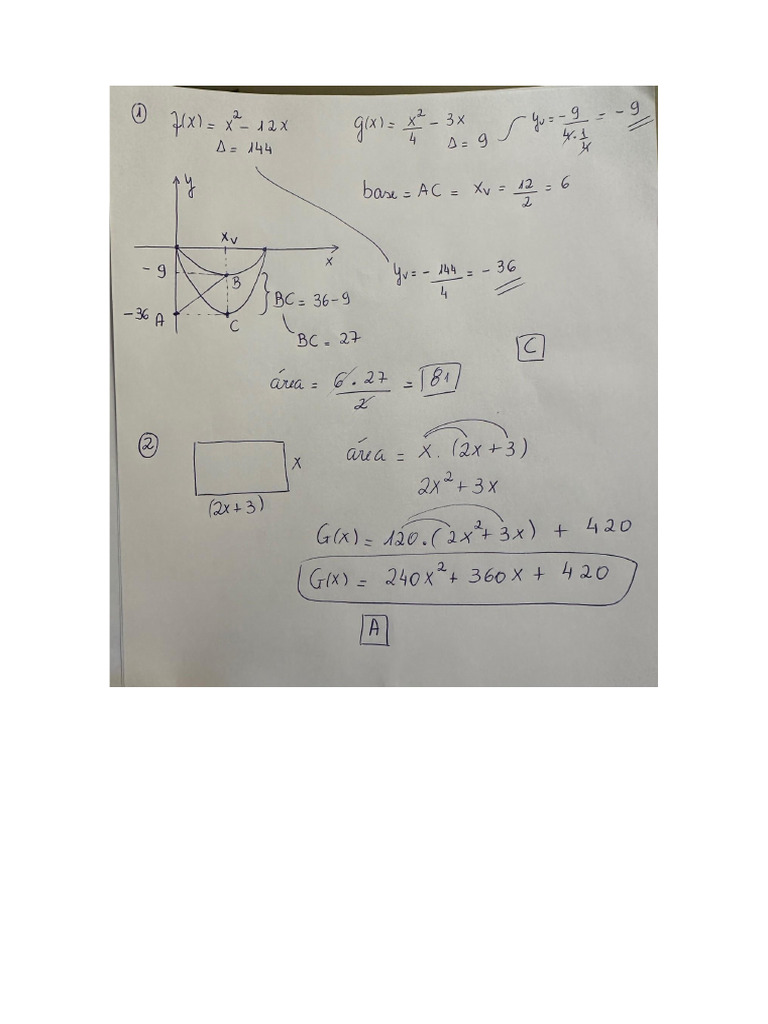 1
f(x) = x² - 12x
Δ = 144
g(x) = x²/4 - 3x
Δ = 9
yv = -9/(4·1/4) = -9
base = AC = xv = 12/2 = 6
y
xv
x
-9
B
yv = -144/4 = -36
BC = 36-9
-36 A
C
BC = 27
C
área = 6·27/2 = 81
2
x
(2x+3)
área = x. (2x+3)
2x² + 3x
G(x) = 120.(2x²+3x) + 420
G(x) = 240x² + 360x + 420
A